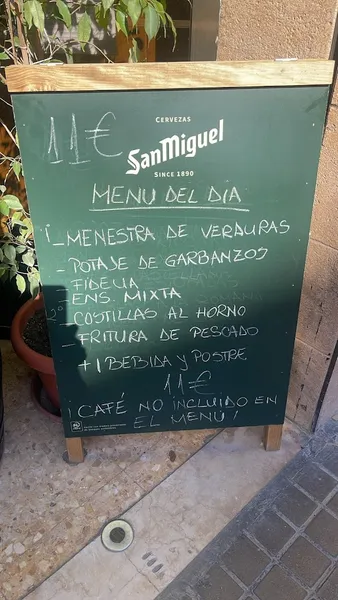 11€
CERVEZAS
SanMiguel
SINCE 1890
MENU DEL DIA
- MENESTRA DE VERDURAS
- POTAJE DE GARBANZOS
- FIDEUA
- ENS. MIXTA
- COSTILLAS AL HORNO
- FRITURA DE PESCADO
+ 1 BEBIDA y POSTRE
11€
¡ CAFÉ NO INCLUIDO EN
EL MENÚ !